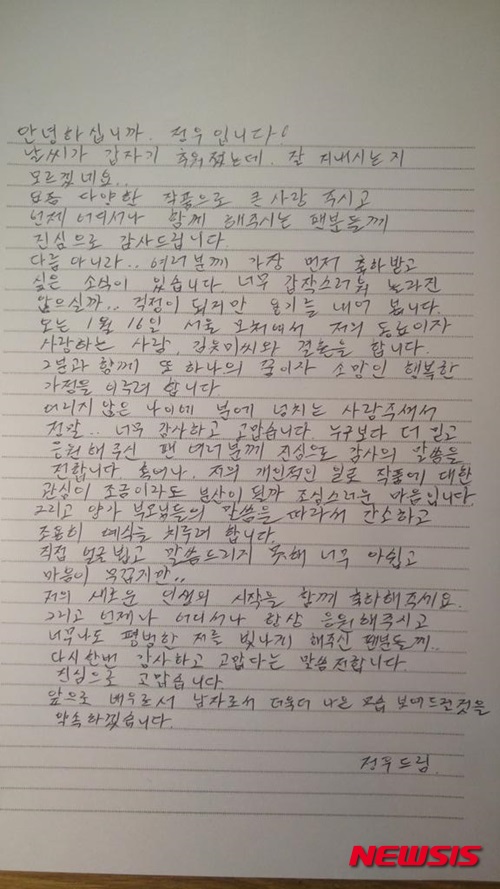 안녕하십니까. 정우입니다!
날씨가 갑자기 추워졌는데. 잘 지내시는지
모르겠네요..
요즘 다양한 작품으로 큰 사랑 주시고
언제 어디서나 함께 해주시는 팬분들께
진심으로 감사드립니다.
다름 아니라.. 여러분께 가장 먼저 축하받고
싶은 소식이 있습니다 너무 갑작스러워 놀라진
않으실까.. 걱정이 되지만 용기를 내어 봅니다.
오는 1월 16일 서울 모처에서 저의 동료이자
사랑하는 사람, 김유미씨와 결혼을 합니다.
그분과 함께 또 하나의 꿈이자 소망인 행복한
가정을 이루려 합니다.
어리지 않은 나이에 분에 넘치는 사랑주셔서
정말.. 너무 감사하고 고맙습니다. 누구보다 더 믿고
응원해주신 팬 여러분께 진심으로 감사의 말씀을
전합니다 혹여나. 저의 개인적인 일로 작품에 대한
관심이 조금이라도 분산이 될까 조심스러운 마음입니다.
그리고 양가 부모님들의 말씀을 따라서 간소하고
조용히 예식을 치루려 합니다.
직접 얼굴 뵙고 말씀드리지 못해 너무 아쉽고
마음이 무겁지만..
저의 새로운 인생의 시작을 함께 축하해주세요.
그리고 언제나 어디서나 항상 응원해주시고
너무나도 평범한 저를 빛나게 해주신 팬분들께..
다시한번 감사하고 고맙다는 말씀 전합니다.
진심으로 고맙습니다.
앞으로 배우로서 남자로서 더욱더 나은 모습 보여드릴것을
약속하겠습니다.
정우드림.
NEWSIS